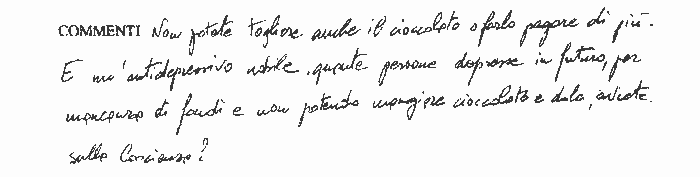 COMMENTI Non potete togliere anche il cioccolato o farlo pagare di più.
E un'antidepressivo nobile. quante persone depresse in futuro, per
mancanza di fondi e non potendo mangiare cioccolato e dolci, avrete
sulla Coscienza?